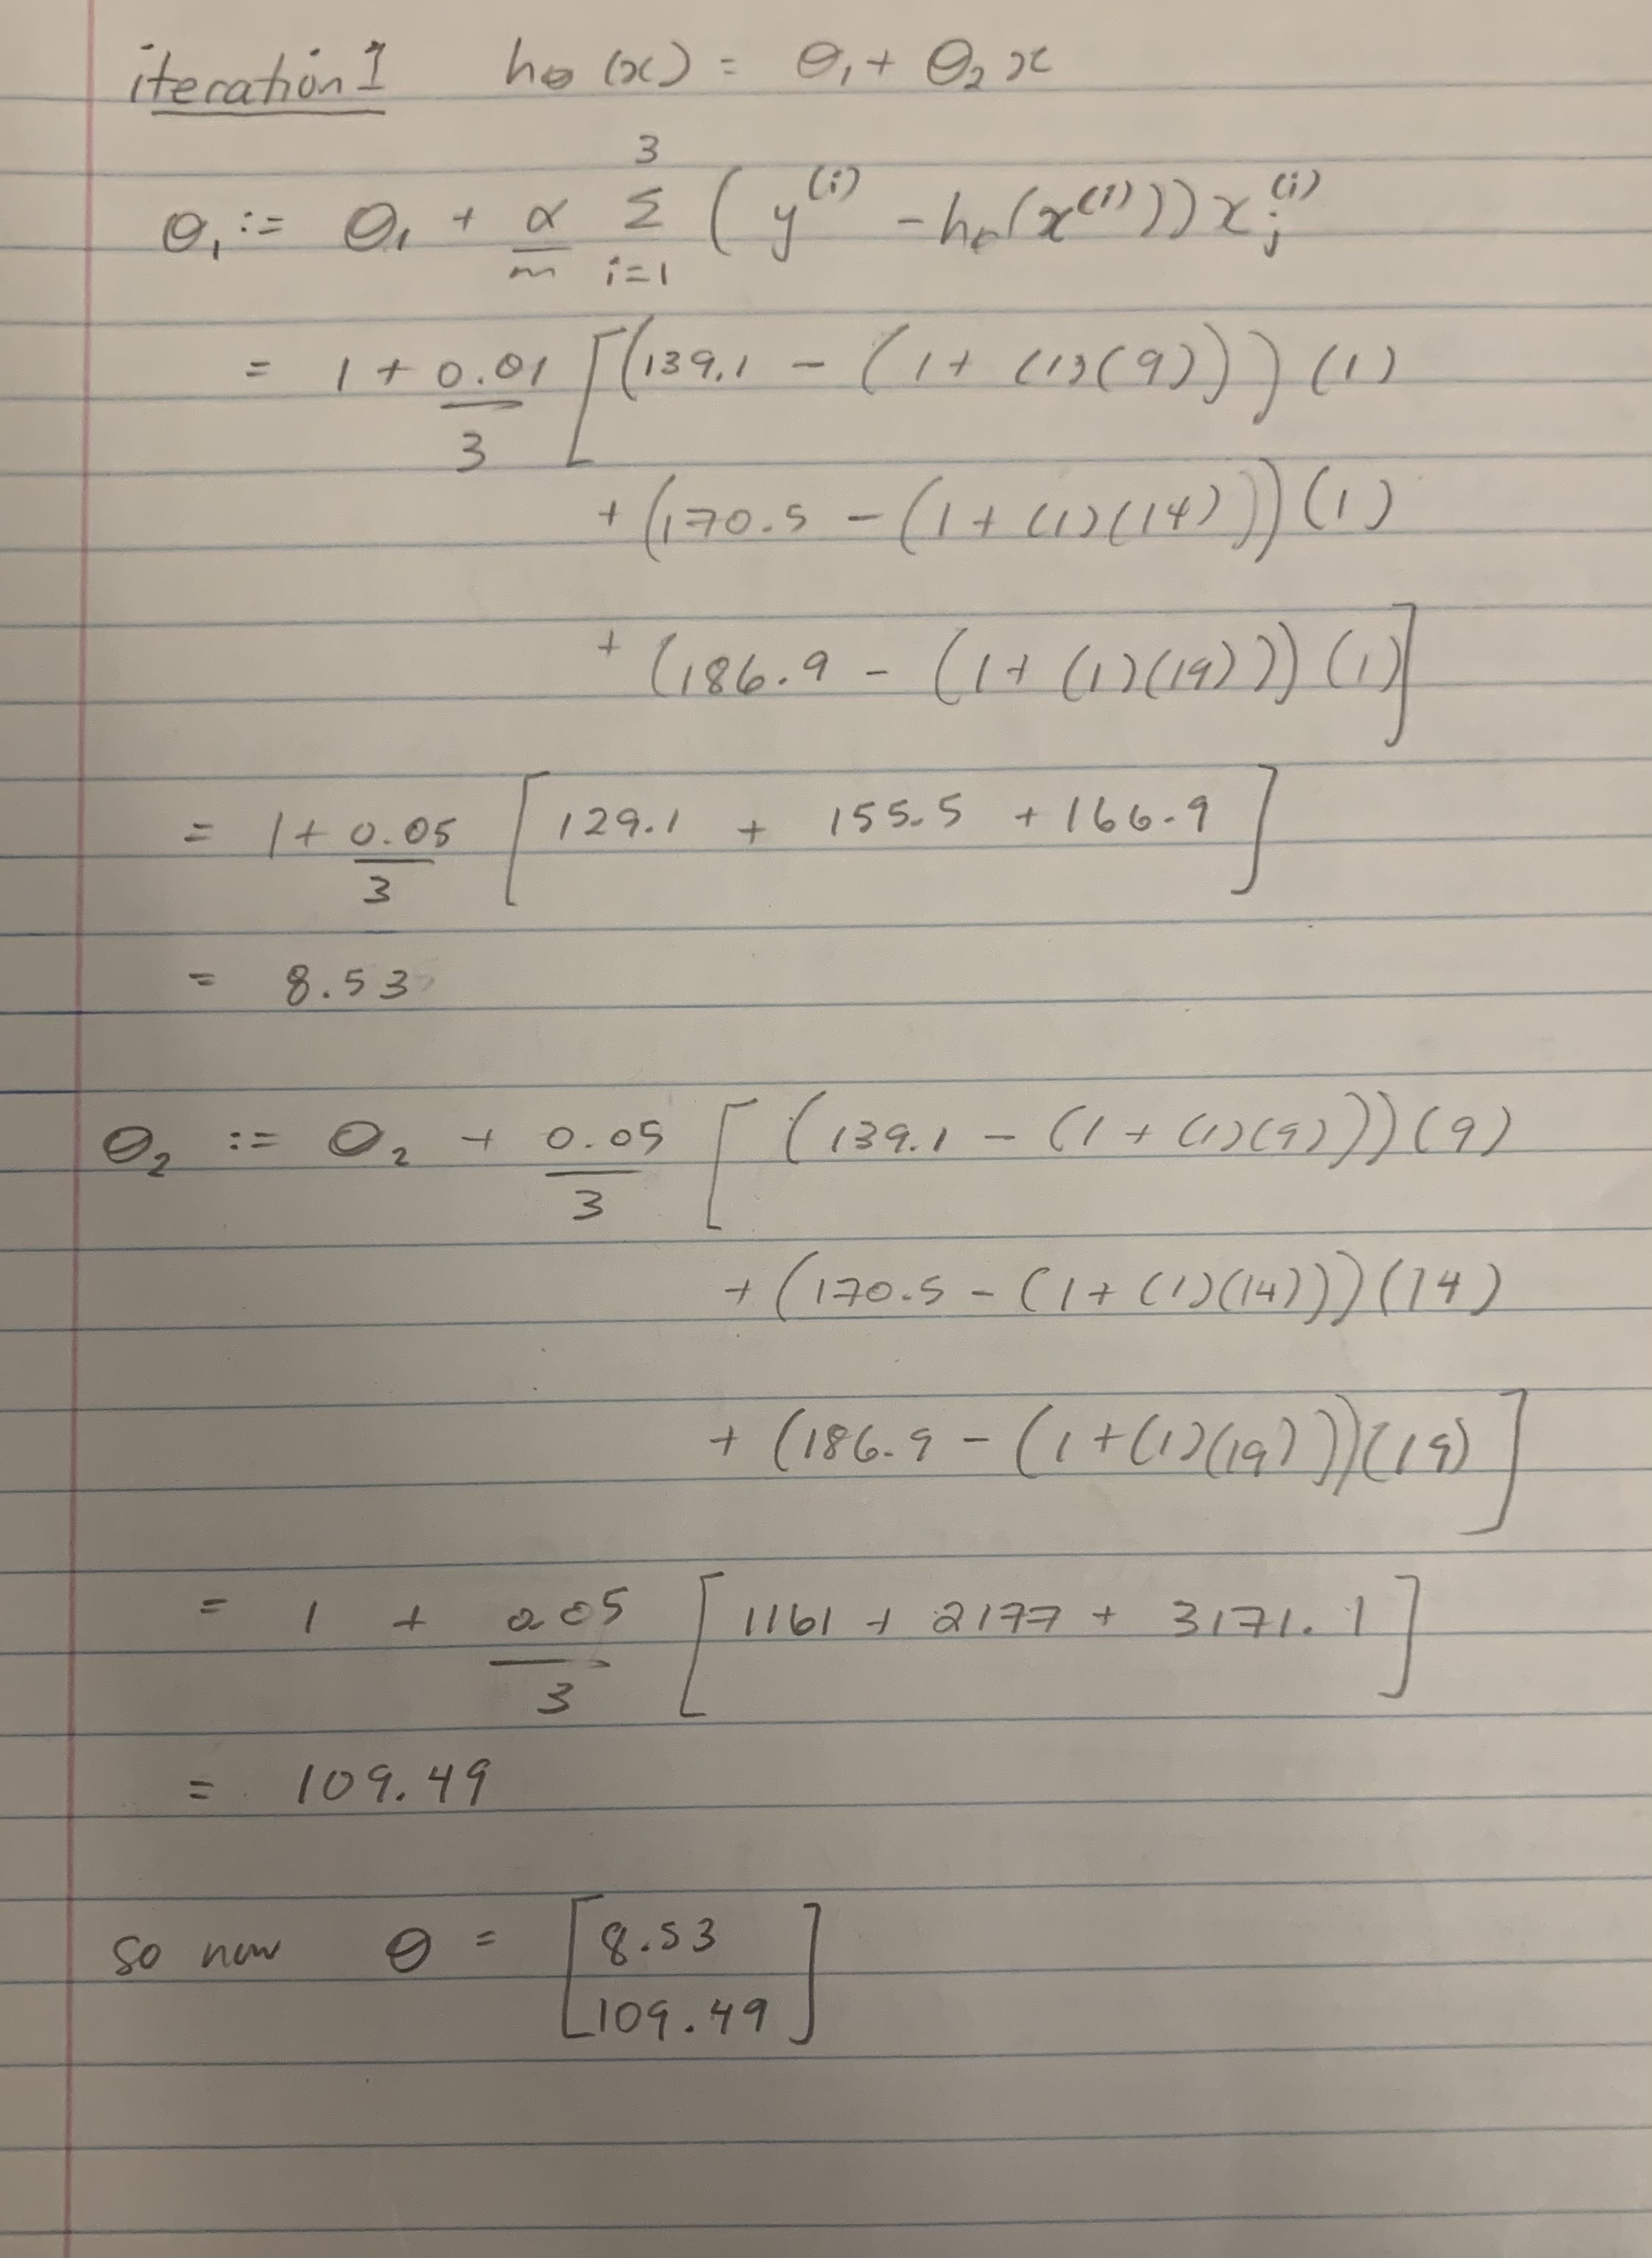 iteration 1 hθ (x) = θ₁ + θ₂ x
θ₁ := θ₁ + α/m Σ_{i=1}^{3} ( y⁽ⁱ⁾ - hθ(x⁽ⁱ⁾)) xⱼ⁽ⁱ⁾
= 1 + 0.01/3 [ (139.1 - (1 + (1)(9))) (1)
+ (170.5 - (1 + (1)(14))) (1)
+ (186.9 - (1 + (1)(19))) (1) ]
= 1 + 0.05/3 [ 129.1 + 155.5 + 166.9 ]
= 8.53
θ₂ := θ₂ + 0.05/3 [ (139.1 - (1 + (1)(9))) (9)
+ (170.5 - (1 + (1)(14))) (14)
+ (186.9 - (1 + (1)(19))) (19) ]
= 1 + 0.05/3 [ 1161 + 2177 + 3171.1 ]
= 109.49
so now θ = [ 8.53
109.49 ]